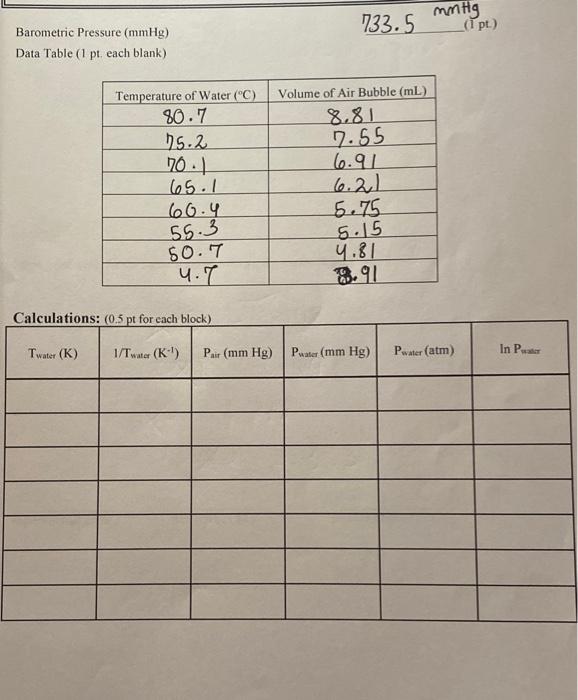 733.5 mmHg
Barometric Pressure (mmHg) (1 pt.)
Data Table (1 pt. each blank)
Temperature of Water (°C) Volume of Air Bubble (mL)
80.7 8.81
75.2 7.55
70.1 6.91
65.1 6.21
60.4 5.75
55.3 5.15
50.7 4.81
4.7 .91
Calculations: (0.5 pt for each block)
Twater (K) 1/Twater (K-1) Pair (mm Hg) Pwater (mm Hg) Pwater (atm) ln Pwater